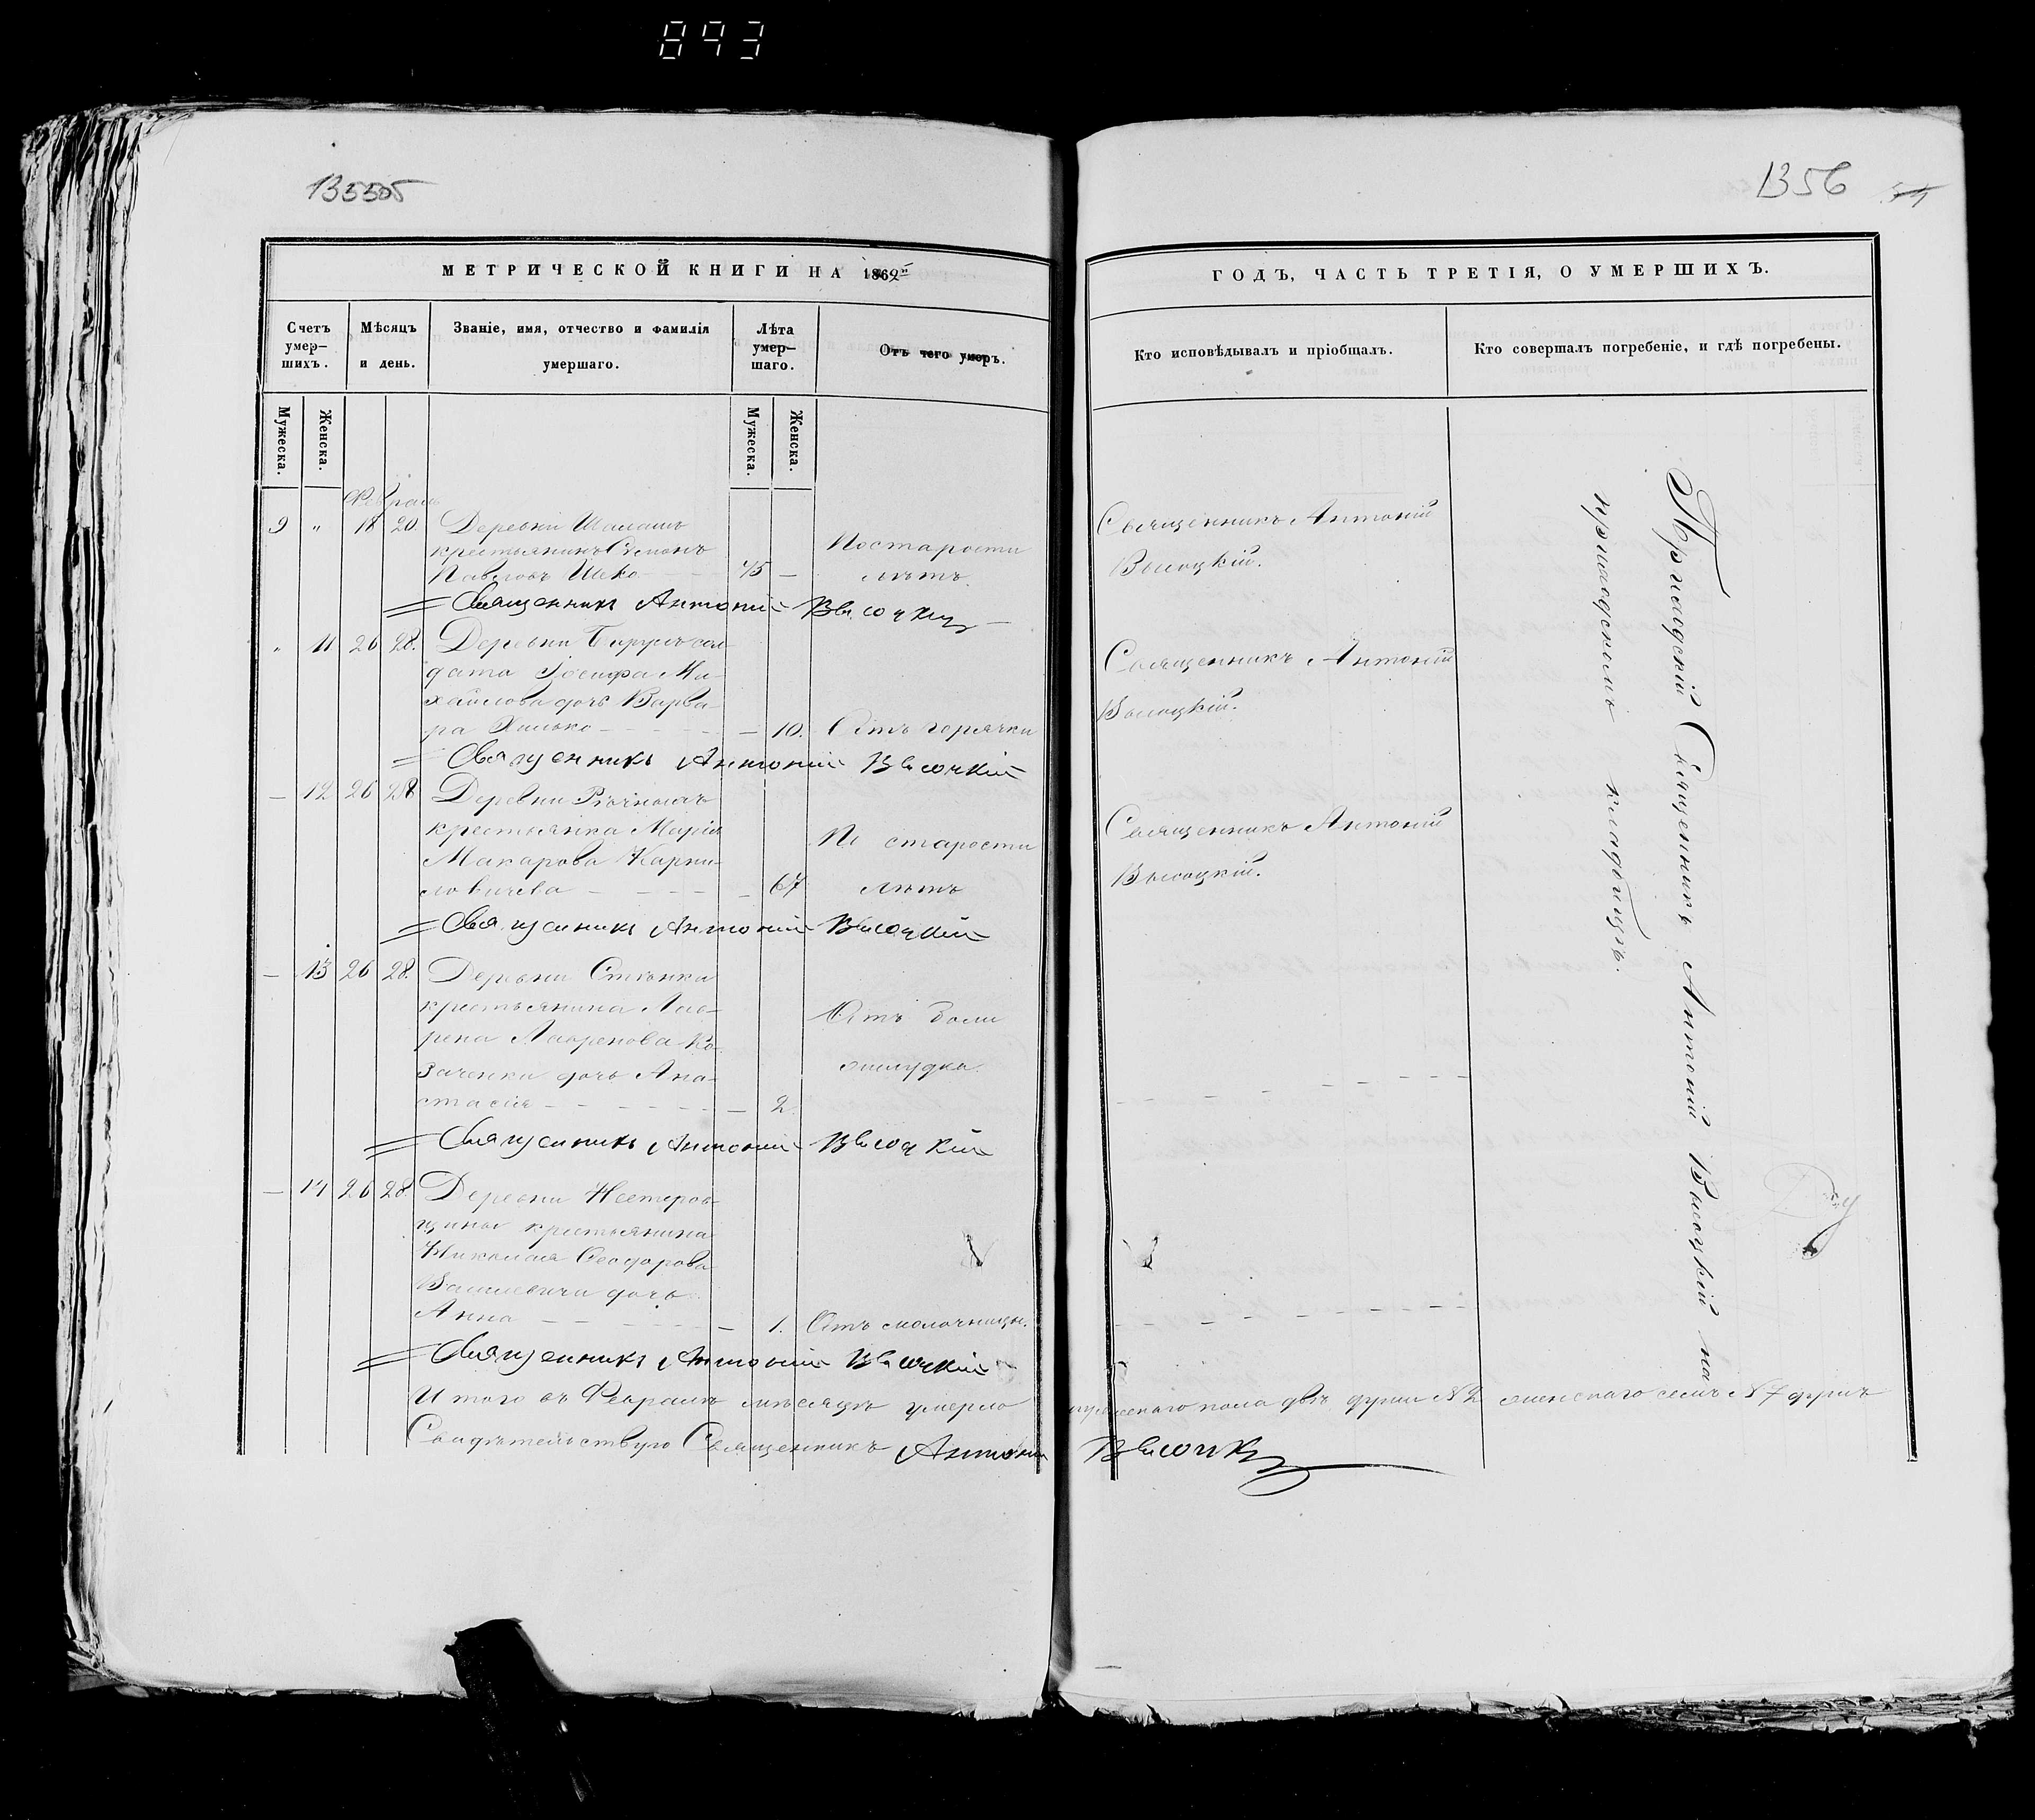 893
135505
1356
МЕТРИЧЕСКОЙ КНИГИ НА 1862
ГОДЪ, ЧАСТЬ ТРЕТІЯ, О УМЕРШИХЪ.
Счетъ умер-
шихъ.
Мѣсяцъ
и день.
Званіе, имя, отчество и фамилія
умершаго.
Лѣта
умер-
шаго.
Отъ чего умеръ.
Кто исповѣдывалъ и пріобщалъ.
Кто совершалъ погребеніе, и гдѣ погребены.
Мужеска.
Женска.
Мужеска.
Женска.
Февраль
9 " 18 20. Деревни
крестьянинъ Семіонъ
Павловъ 75 —
По старости
лѣтъ.
Священникъ Антоній
Высоцкій.
Священникъ Антоній Высоцкій
" 11 26 28. Деревни сол-
дата Іосифа Ми-
хайлова дочь Варва-
ра Хилько — 10. Отъ горячки
Священникъ Антоній
Высоцкій.
Священникъ Антоній Высоцкій
— 12 26 28 Деревни
крестьянка Марія
Макарова Карпи-
ловичева — 67
По старости
лѣтъ
Священникъ Антоній
Высоцкій.
Священникъ Антоній Высоцкій
— 13 26 28. Деревни Стѣнки
крестьянина Лав-
рена Лавренова Ко-
заченки дочь Ана-
стасія — 2.
Отъ боли
желудка.
Священникъ Антоній Высоцкій
— 14 26 28. Деревни Нестеров-
щины крестьянина
Николая Ѳеодорова
Василевича дочь
Анна — 1. Отъ молочницы.
Священникъ Антоній Высоцкій
Итого въ Февралѣ мѣсяцѣ умерло мужескаго пола двѣ души № 2 женскаго семь № 7 душъ
Свидѣтельствую Священникъ Антоній Высоцкій
Священникъ Антоній Высоцкій на
кладбищѣ.